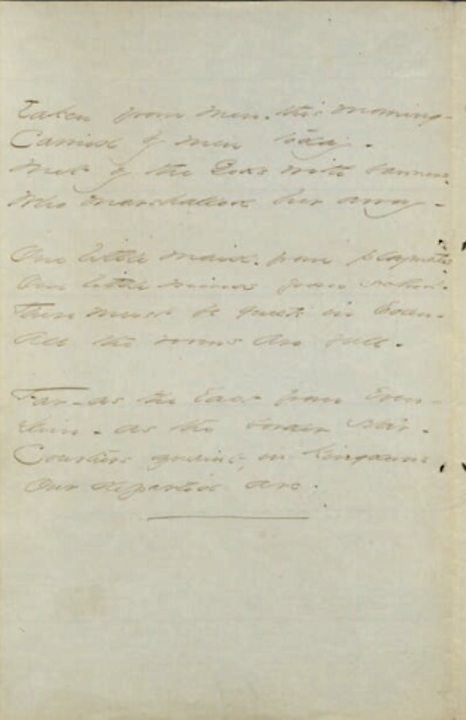 Taken from men - this morning -
Carried by men today -
Met by the Gods with banners
Who marshalled her away -

One little maid - from playmates
One little mind from school -
There must be guests in Eden -
All the rooms are full -

Far - as the East from Even -
Dim - as the border star -
Courtiers quaint, in Kingdoms
Our departed are.